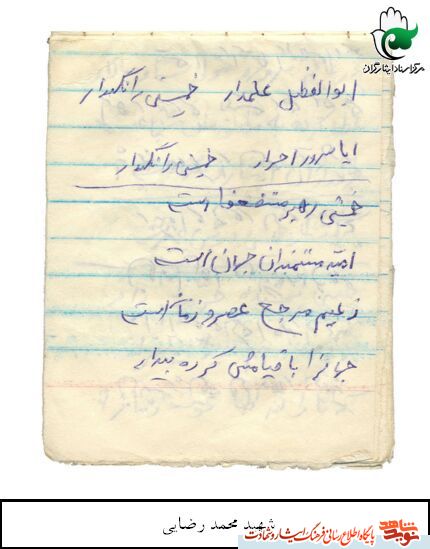 مرکز اسناد ایثارگران
ابوالفضل علمدار خمینی را نگهدار
ایا سرور احرار خمینی را نگهدار
خمینی رهبر مستضعفا است
امید مستمندان جهان است
زعیم مرجع عصر و زمان است
جهانرا با قیامش کرده بیدار
شهید محمد رضایی
نوید شاهد
پایگاه اطلاع رسانی فرهنگ ایثار و شهادت